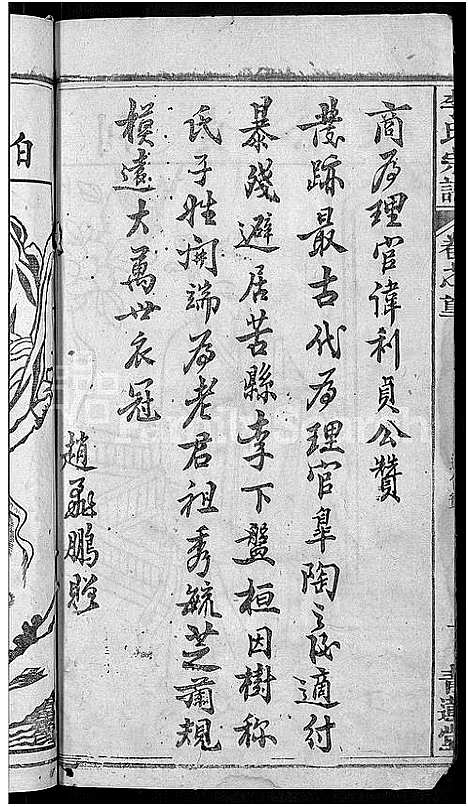 李氏宗譜
卷之首
青蓮堂
商為理官偉利貞公贊
發跡最古代為理官皐陶之後適付
暴殘避居苦縣李下盤桓因樹称
氏子姓開端為老君祖秀毓芝蘭規
模遠大萬世衣冠
趙飛鵬贈
白